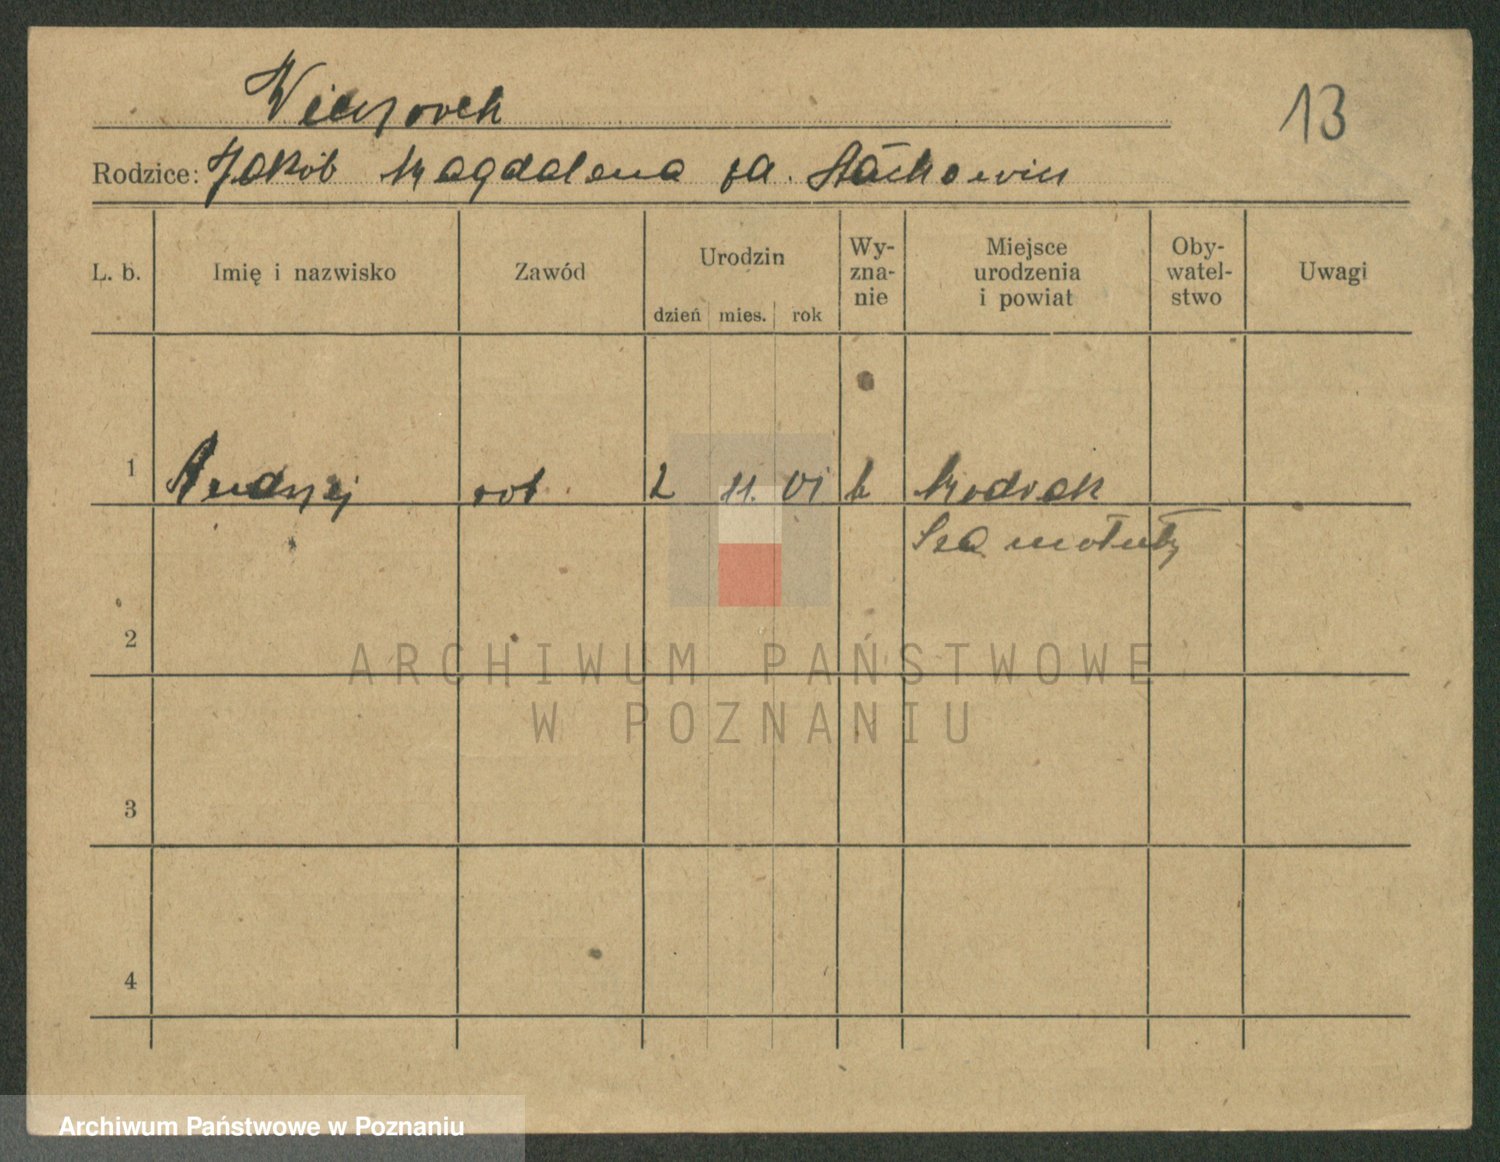 Wieczorek
13
Rodzice: Jakób Magdalena za. Stachowiak
L. b. Imię i nazwisko Zawód Urodzin dzień mies. rok Wy-zna-nie Miejsce urodzenia i powiat Oby-watel-stwo Uwagi
1 Andrzej rob 2 11. 01 k
Szamotuły
2
ARCHIWUM PAŃSTWOWE
W POZNANIU
3
4
Archiwum Państwowe w Poznaniu